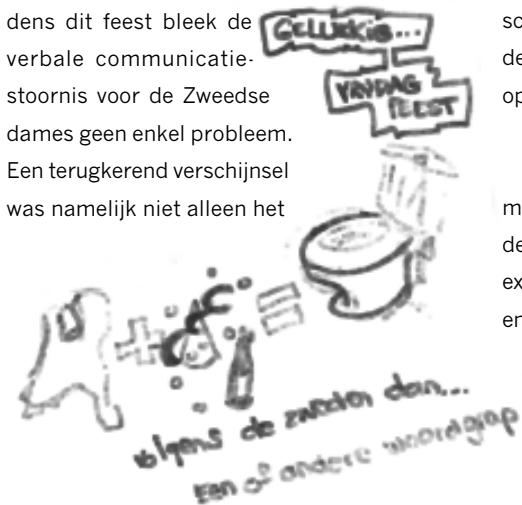 dens dit feest bleek de
verbale communicatie-
stoornis voor de Zweedse
dames geen enkel probleem.
Een terugkerend verschijnsel
was namelijk niet alleen het
GELUKKIG...
VRIJDAG
FEEST
sc
de
op
m
de
ex
en
volgens de zweden dan...
een of andere woordgrap